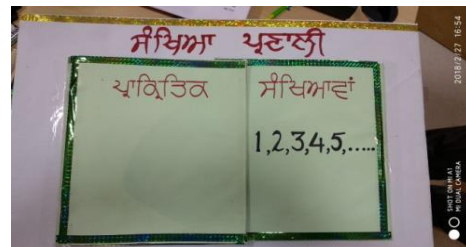 ਸੰਖਿਆ ਪ੍ਰਣਾਲੀ
ਪ੍ਰਾਕ੍ਰਿਤਿਕ ਸੰਖਿਆਵਾਂ
1,2,3,4,5,.....
2018/2/27 16:54
SHOT ON MI A1
MI DUAL CAMERA